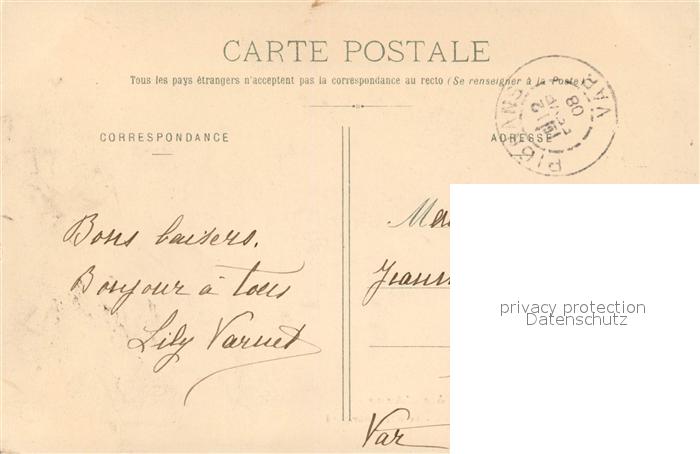 CARTE POSTALE
Tous les pays étrangers n'acceptent pas la correspondance au recto (Se renseigner à la Poste)
CORRESPONDANCE
ADRESSE
VAR
08
Bons baisers.
Bonjour à tous
Lily Varnet
Jeann
Var
privacy protection
Datenschutz